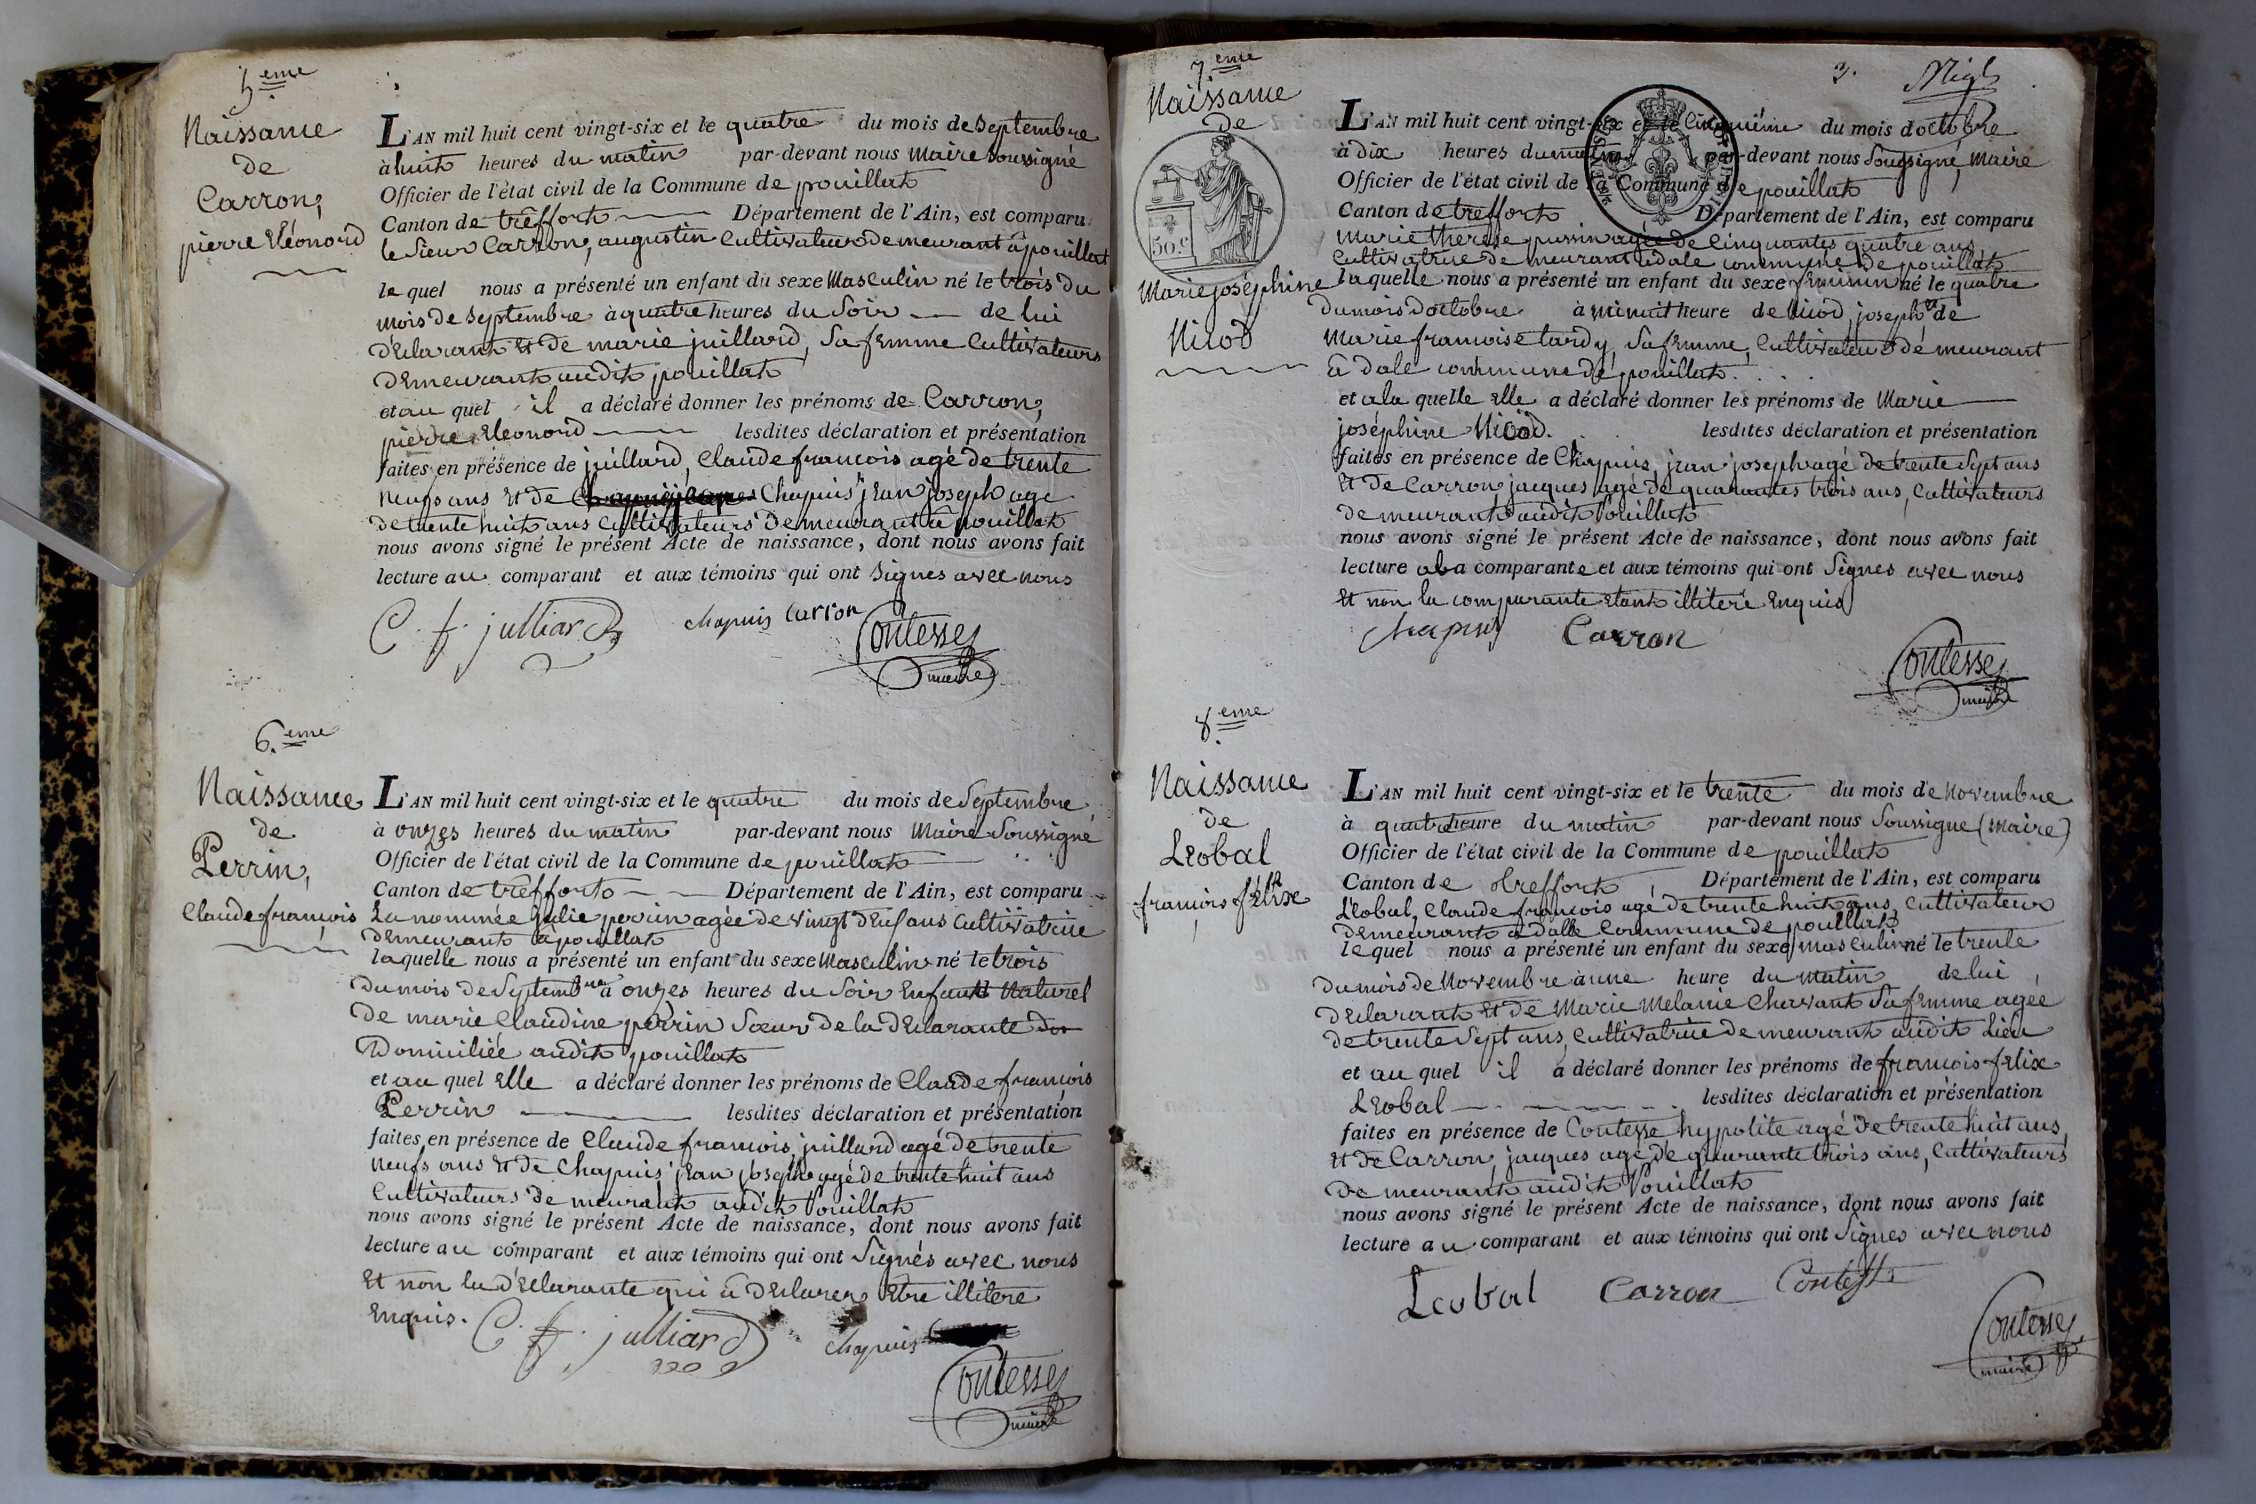 5.eme
Naissance
de
Carron,
pierre Eléonord
L'AN mil huit cent vingt-six et le quatre du mois de Septembre
à huit heures du matin par-devant nous Maire Soussigné
Officier de l'état civil de la Commune de pouillat
Canton de trêffort Département de l'Ain, est comparu
le Sieur Carron, augustin Cultivateur demeurant à pouillat
le quel nous a présenté un enfant du sexe Masculin né le trois du
mois de Septembre à quatre heures du Soir de lui
déclarant Et de marie juillard, Sa femme Cultivateurs
demeurant audit pouillat
et au quel il a déclaré donner les prénoms de Carron,
pierre Eleonord lesdites déclaration et présentation
faites en présence de juillard, Claude francois agé de trente
neufs ans Et de Chapuis jean joseph age
de trente huit ans Cultivateurs demeurant à pouillat
nous avons signé le présent Acte de naissance, dont nous avons fait
lecture au comparant et aux témoins qui ont Signés avec nous
C. f. julliard chapuis Carron Contesse
maire
6.eme
Naissance
de
Perrin,
Claude francois
L'AN mil huit cent vingt-six et le quatre du mois de Septembre
à onzes heures du matin par-devant nous Maire Soussigné
Officier de l'état civil de la Commune de pouillat
Canton de trêffort Département de l'Ain, est comparu
La nommée Julie perrin agée de vingt deux ans Cultivatrice
demeurant à pouillat
laquelle nous a présenté un enfant du sexe Masculin né le trois
du mois de Septembre à onzes heures du Soir Enfant Naturel
de marie Claudine perrin Sœur de la declarante
Domiciliée audit pouillat
et au quel Elle a déclaré donner les prénoms de Claude francois
Perrin lesdites déclaration et présentation
faites en présence de Claude francois juillard agé de trente
neufs ans Et de Chapuis jean joseph agé de trente huit ans
Cultivateurs demeurant audit Pouillat
nous avons signé le présent Acte de naissance, dont nous avons fait
lecture au comparant et aux témoins qui ont Signés avec nous
Et non la déclarante qui a déclarer Etre illitere
Enquis.
C. f. julliard chapuis
Contesse
maire
3.
7.eme
Naissance
de
50.c
Marie joséphine
Nicod
L'AN mil huit cent vingt-six et le Cinquième du mois d'octobre
à dix heures du matin par-devant nous Soussigné, Maire
Officier de l'état civil de la Commune de pouillat
Canton de treffort Département de l'Ain, est comparu
Marie therese agée de Cinquantes quatre ans
Cultivatrice demeurant à dale commune de pouillat
laquelle nous a présenté un enfant du sexe feminin né le quatre
du mois d'octobre à minuit heure de Nicod, joseph Et de
Marie francoise tardy, Sa femme, Cultivateurs demeurant
à dale commune de pouillat.
et a la quelle Elle a déclaré donner les prénoms de Marie
joséphine Nicod. lesdites déclaration et présentation
faites en présence de Chapuis, jean joseph agé de trente Sept ans
Et de Carron jacques agé de quarantes trois ans, Cultivateurs
demeurant audit Pouillat
nous avons signé le présent Acte de naissance, dont nous avons fait
lecture a la comparante et aux témoins qui ont Signés avec nous
Et non la comparante Etant illiteré Enquis
chapuis Carron
Contesse
maire
8.eme
Naissance
de
Lcobal
francois félix
L'AN mil huit cent vingt-six et le trente du mois de Novembre
à quatre heure du matin par-devant nous Soussigné (Maire)
Officier de l'état civil de la Commune de pouillat
Canton de treffort Département de l'Ain, est comparu
Lcobal, Claude francois agé de trente huit ans, Cultivateur
demeurant a Dalle Commune de pouillat
le quel nous a présenté un enfant du sexe masculin né le trente
du mois de Novembre à une heure du matin de lui
déclarant Et de Marie Melanie Chavant Sa femme agée
de trente Sept ans, Cultivatrice demeurant audit Lieu
et au quel il a déclaré donner les prénoms de francois felix
Lcobal lesdites déclaration et présentation
faites en présence de Contesse hypolite agé de trente huit ans,
Et de Carron, jacques agé de quarante trois ans, Cultivateurs
demeurant audit Pouillat
nous avons signé le présent Acte de naissance, dont nous avons fait
lecture au comparant et aux témoins qui ont Signés avec nous
Lcobal Carron Contesse
Contesse
maire